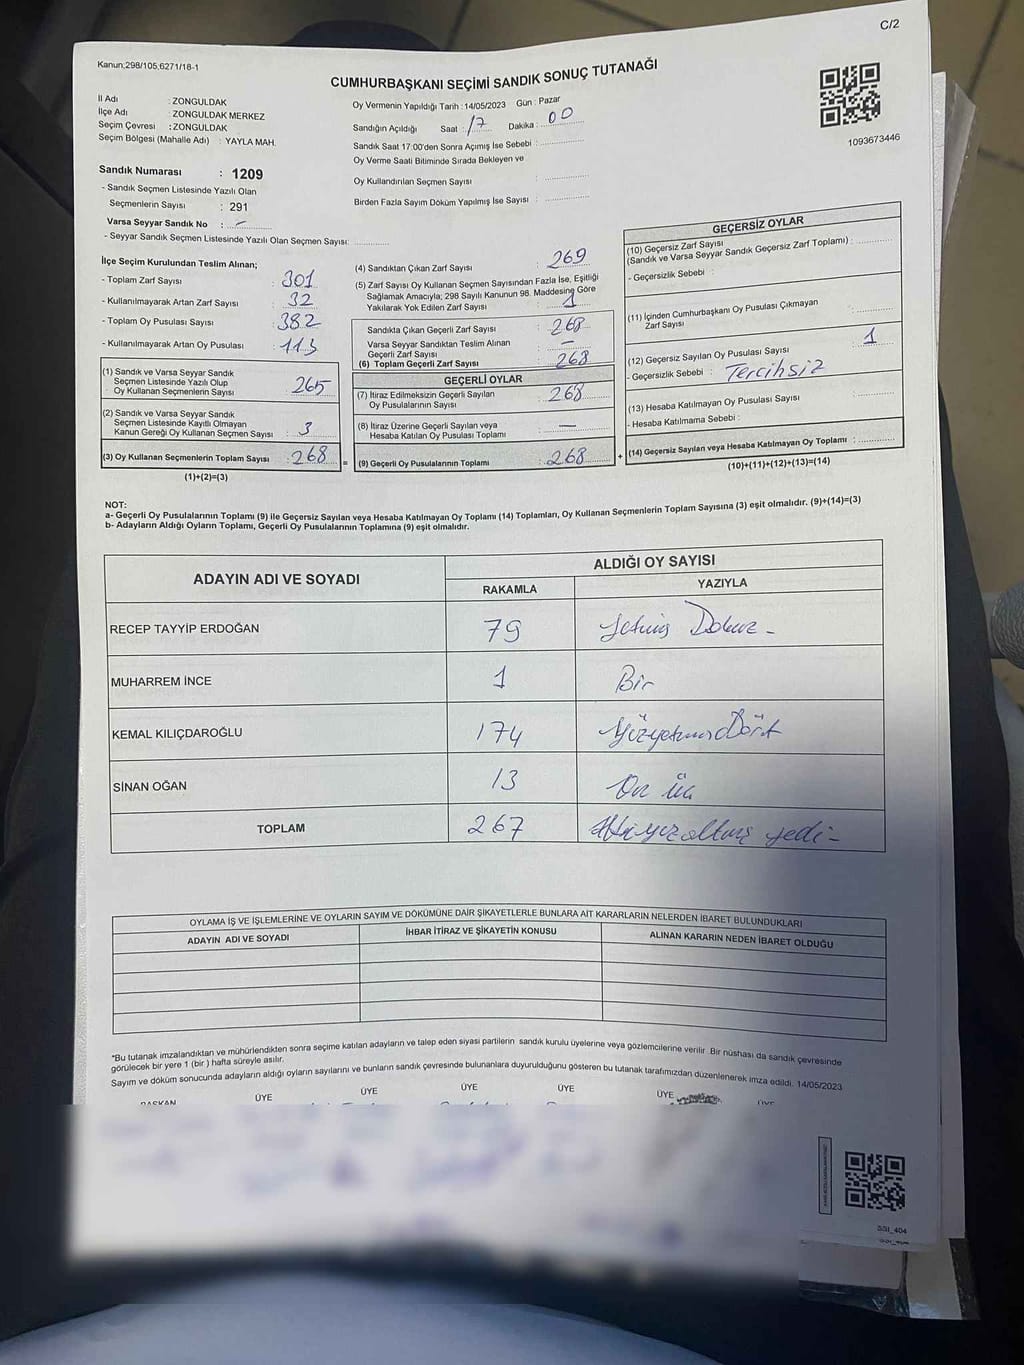 C/2
Kanun;298/105,6271/18-1
CUMHURBAŞKANI SEÇİMİ SANDIK SONUÇ TUTANAĞI
1093673446
İl Adı : ZONGULDAK
İlçe Adı : ZONGULDAK MERKEZ
Seçim Çevresi : ZONGULDAK
Seçim Bölgesi (Mahalle Adı) : YAYLA MAH.
Oy Vermenin Yapıldığı Tarih : 14/05/2023 Gün : Pazar
Sandığın Açıldığı Saat : 17 Dakika : 00
Sandık Saat 17:00'den Sonra Açımış İse Sebebi :
Oy Verme Saati Bitiminde Sırada Bekleyen ve
Oy Kullandırılan Seçmen Sayısı :
Birden Fazla Sayım Döküm Yapılmış İse Sayısı :
Sandık Numarası : 1209
- Sandık Seçmen Listesinde Yazılı Olan
Seçmenlerin Sayısı : 291
Varsa Seyyar Sandık No : -
- Seyyar Sandık Seçmen Listesinde Yazılı Olan Seçmen Sayısı:
İlçe Seçim Kurulundan Teslim Alınan;
- Toplam Zarf Sayısı : 301
- Kullanılmayarak Artan Zarf Sayısı : 32
- Toplam Oy Pusulası Sayısı : 382
- Kullanılmayarak Artan Oy Pusulası : 113
(1) Sandık ve Varsa Seyyar Sandık
Seçmen Listesinde Yazılı Olup
Oy Kullanan Seçmenlerin Sayısı : 265
(2) Sandık ve Varsa Seyyar Sandık
Seçmen Listesinde Kayıtlı Olmayan
Kanun Gereği Oy Kullanan Seçmen Sayısı : 3
(3) Oy Kullanan Seçmenlerin Toplam Sayısı : 268
(1)+(2)=(3)
(4) Sandıktan Çıkan Zarf Sayısı : 269
(5) Zarf Sayısı Oy Kullanan Seçmen Sayısından Fazla İse, Eşitliği
Sağlamak Amacıyla; 298 Sayılı Kanunun 98. Maddesine Göre
Yakılarak Yok Edilen Zarf Sayısı : 1
Sandıkta Çıkan Geçerli Zarf Sayısı : 268
Varsa Seyyar Sandıktan Teslim Alınan
Geçerli Zarf Sayısı : -
(6) Toplam Geçerli Zarf Sayısı : 268
GEÇERLİ OYLAR
(7) İtiraz Edilmeksizin Geçerli Sayılan
Oy Pusulalarının Sayısı : 268
(8) İtiraz Üzerine Geçerli Sayılan veya
Hesaba Katılan Oy Pusulası Toplamı : —
= (9) Geçerli Oy Pusulalarının Toplamı : 268 +
GEÇERSİZ OYLAR
(10) Geçersiz Zarf Sayısı
(Sandık ve Varsa Seyyar Sandık Geçersiz Zarf Toplamı) :
- Geçersizlik Sebebi :
(11) İçinden Cumhurbaşkanı Oy Pusulası Çıkmayan
Zarf Sayısı :
(12) Geçersiz Sayılan Oy Pusulası Sayısı : 1
- Geçersizlik Sebebi : Tercihsiz
(13) Hesaba Katılmayan Oy Pusulası Sayısı :
- Hesaba Katılmama Sebebi :
(14) Geçersiz Sayılan veya Hesaba Katılmayan Oy Toplamı :
(10)+(11)+(12)+(13)=(14)
NOT:
a- Geçerli Oy Pusulalarının Toplamı (9) ile Geçersiz Sayılan veya Hesaba Katılmayan Oy Toplamı (14) Toplamları, Oy Kullanan Seçmenlerin Toplam Sayısına (3) eşit olmalıdır. (9)+(14)=(3)
b- Adayların Aldığı Oyların Toplamı, Geçerli Oy Pusulalarının Toplamına (9) eşit olmalıdır.
ADAYIN ADI VE SOYADI ALDIĞI OY SAYISI
RAKAMLA YAZIYLA
RECEP TAYYİP ERDOĞAN 79 Yetmiş Dokuz -
MUHARREM İNCE 1 Bir
KEMAL KILIÇDAROĞLU 174 Yüzyetmiş Dört
SİNAN OĞAN 13 On üç
TOPLAM 267 İkiyüzaltmış yedi -
OYLAMA İŞ VE İŞLEMLERİNE VE OYLARIN SAYIM VE DÖKÜMÜNE DAİR ŞİKAYETLERLE BUNLARA AİT KARARLARIN NELERDEN İBARET BULUNDUKLARI
ADAYIN ADI VE SOYADI İHBAR İTİRAZ VE ŞİKAYETİN KONUSU ALINAN KARARIN NEDEN İBARET OLDUĞU
*Bu tutanak imzalandıktan ve mühürlendikten sonra seçime katılan adayların ve talep eden siyasi partilerin sandık kurulu üyelerine veya gözlemcilerine verilir. Bir nüshası da sandık çevresinde
görülecek bir yere 1 (bir ) hafta süreyle asılır.
Sayım ve döküm sonucunda adayların aldığı oyların sayılarını ve bunların sandık çevresinde bulunanlara duyurulduğunu gösteren bu tutanak tarafımızdan düzenlenerek imza edildi. 14/05/2023
BAŞKAN ÜYE ÜYE ÜYE ÜYE ÜYE ÜYE